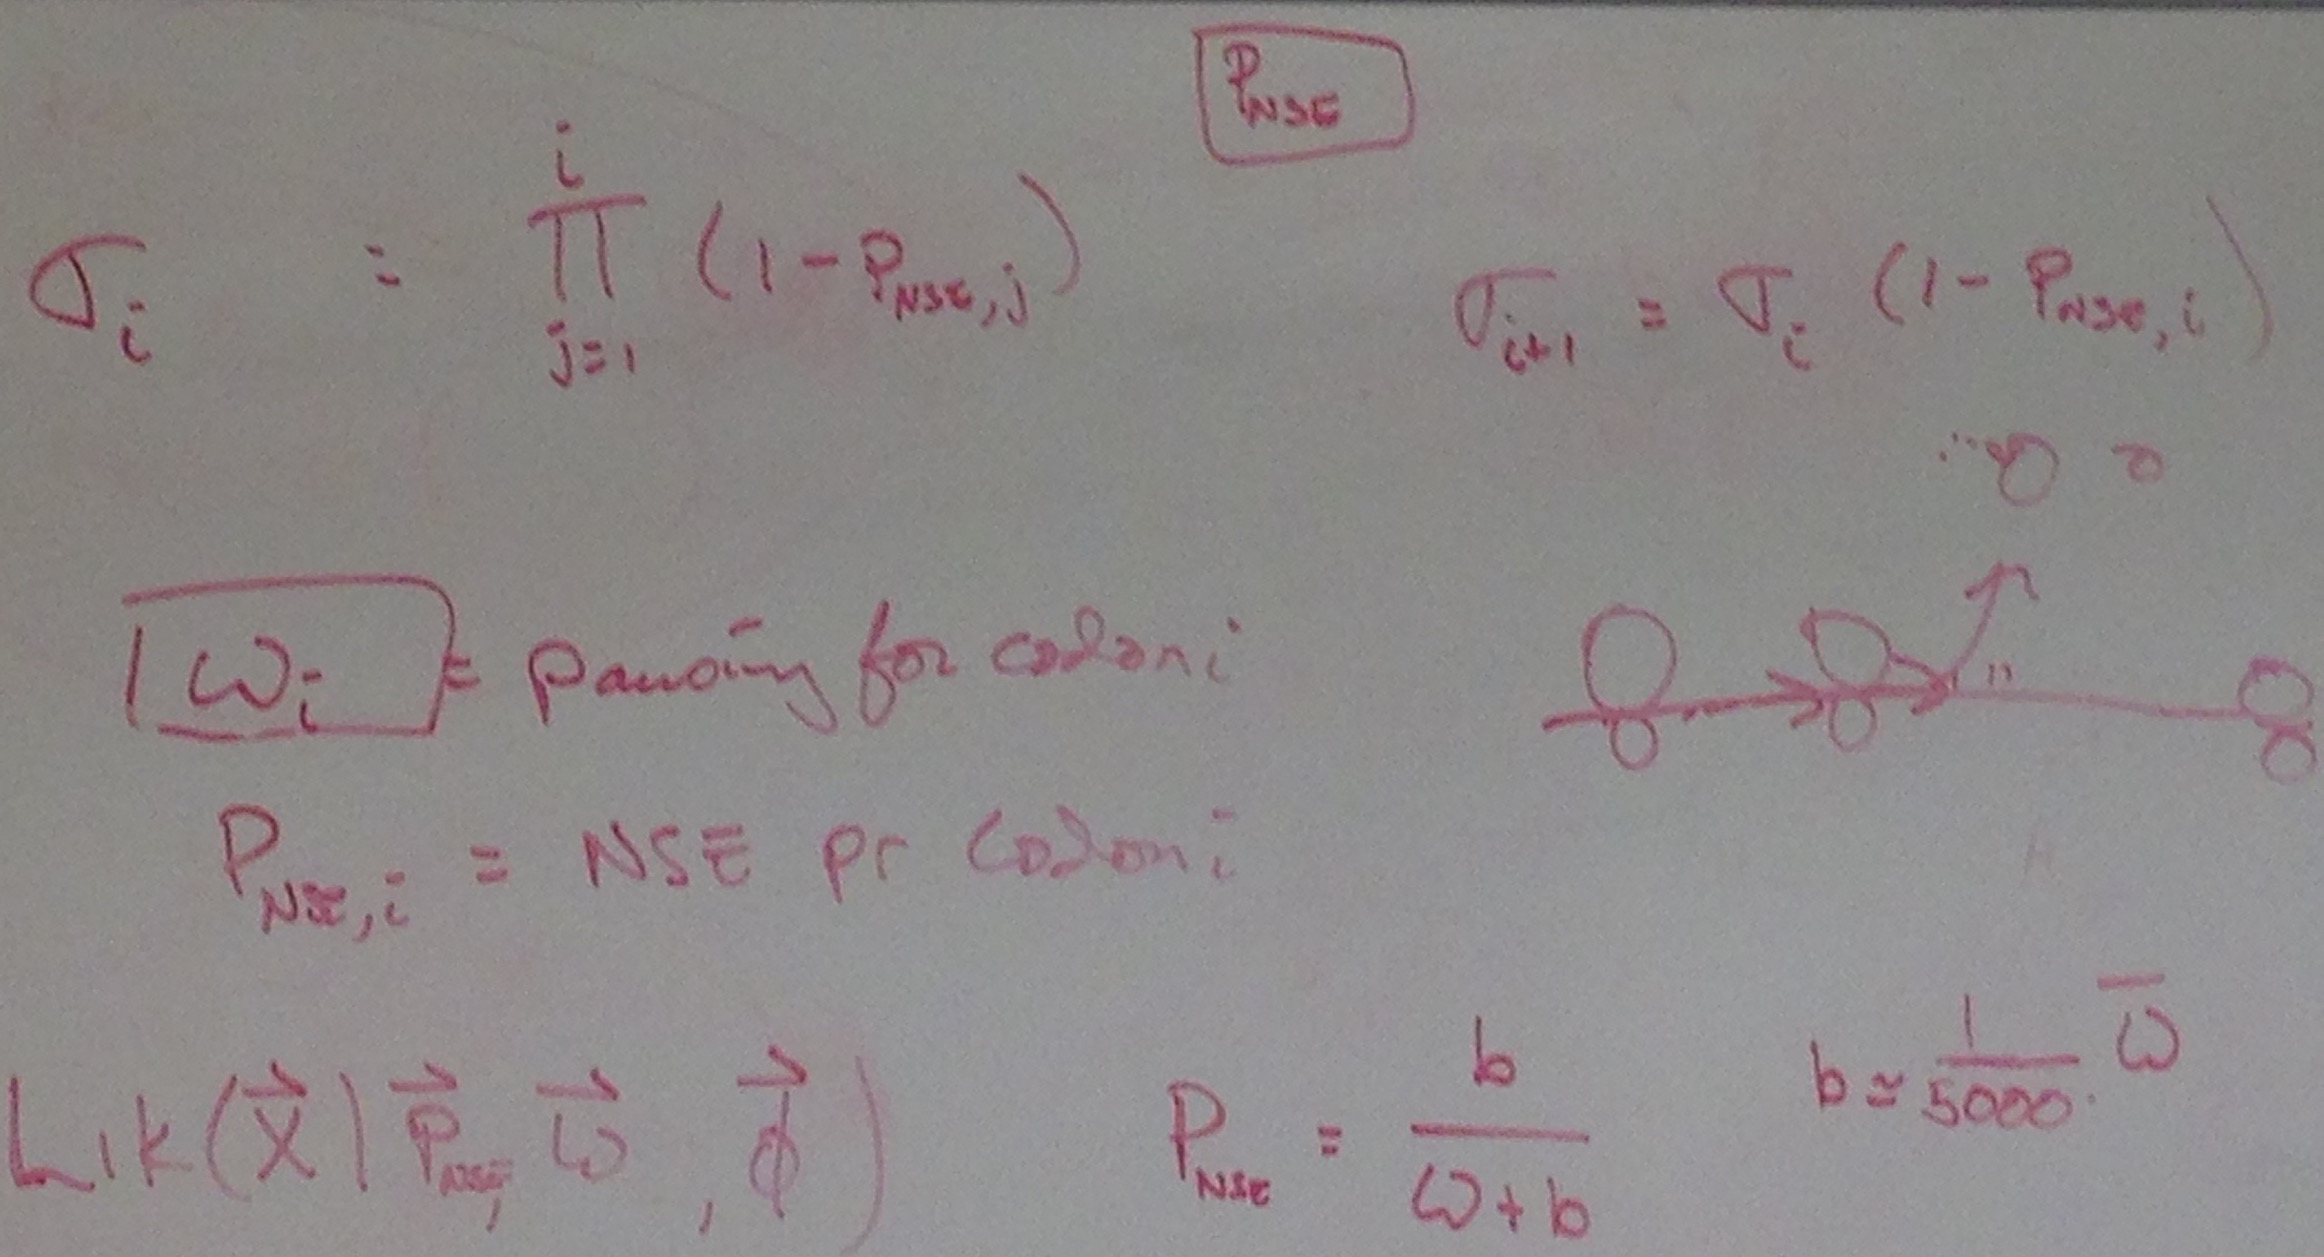 P_NSE
σ_i = ∏_{j=1}^{i} (1 - P_NSE,j)
σ_{i+1} = σ_i (1 - P_NSE,i)
ω_i = pausing for codon i
P_NSE,i = NSE pr codon i
Lik(X⃗ | P⃗_NSE, ω⃗, φ⃗)
P_NSE = b / (ω + b)
b ≃ 1/5000 · ω̄